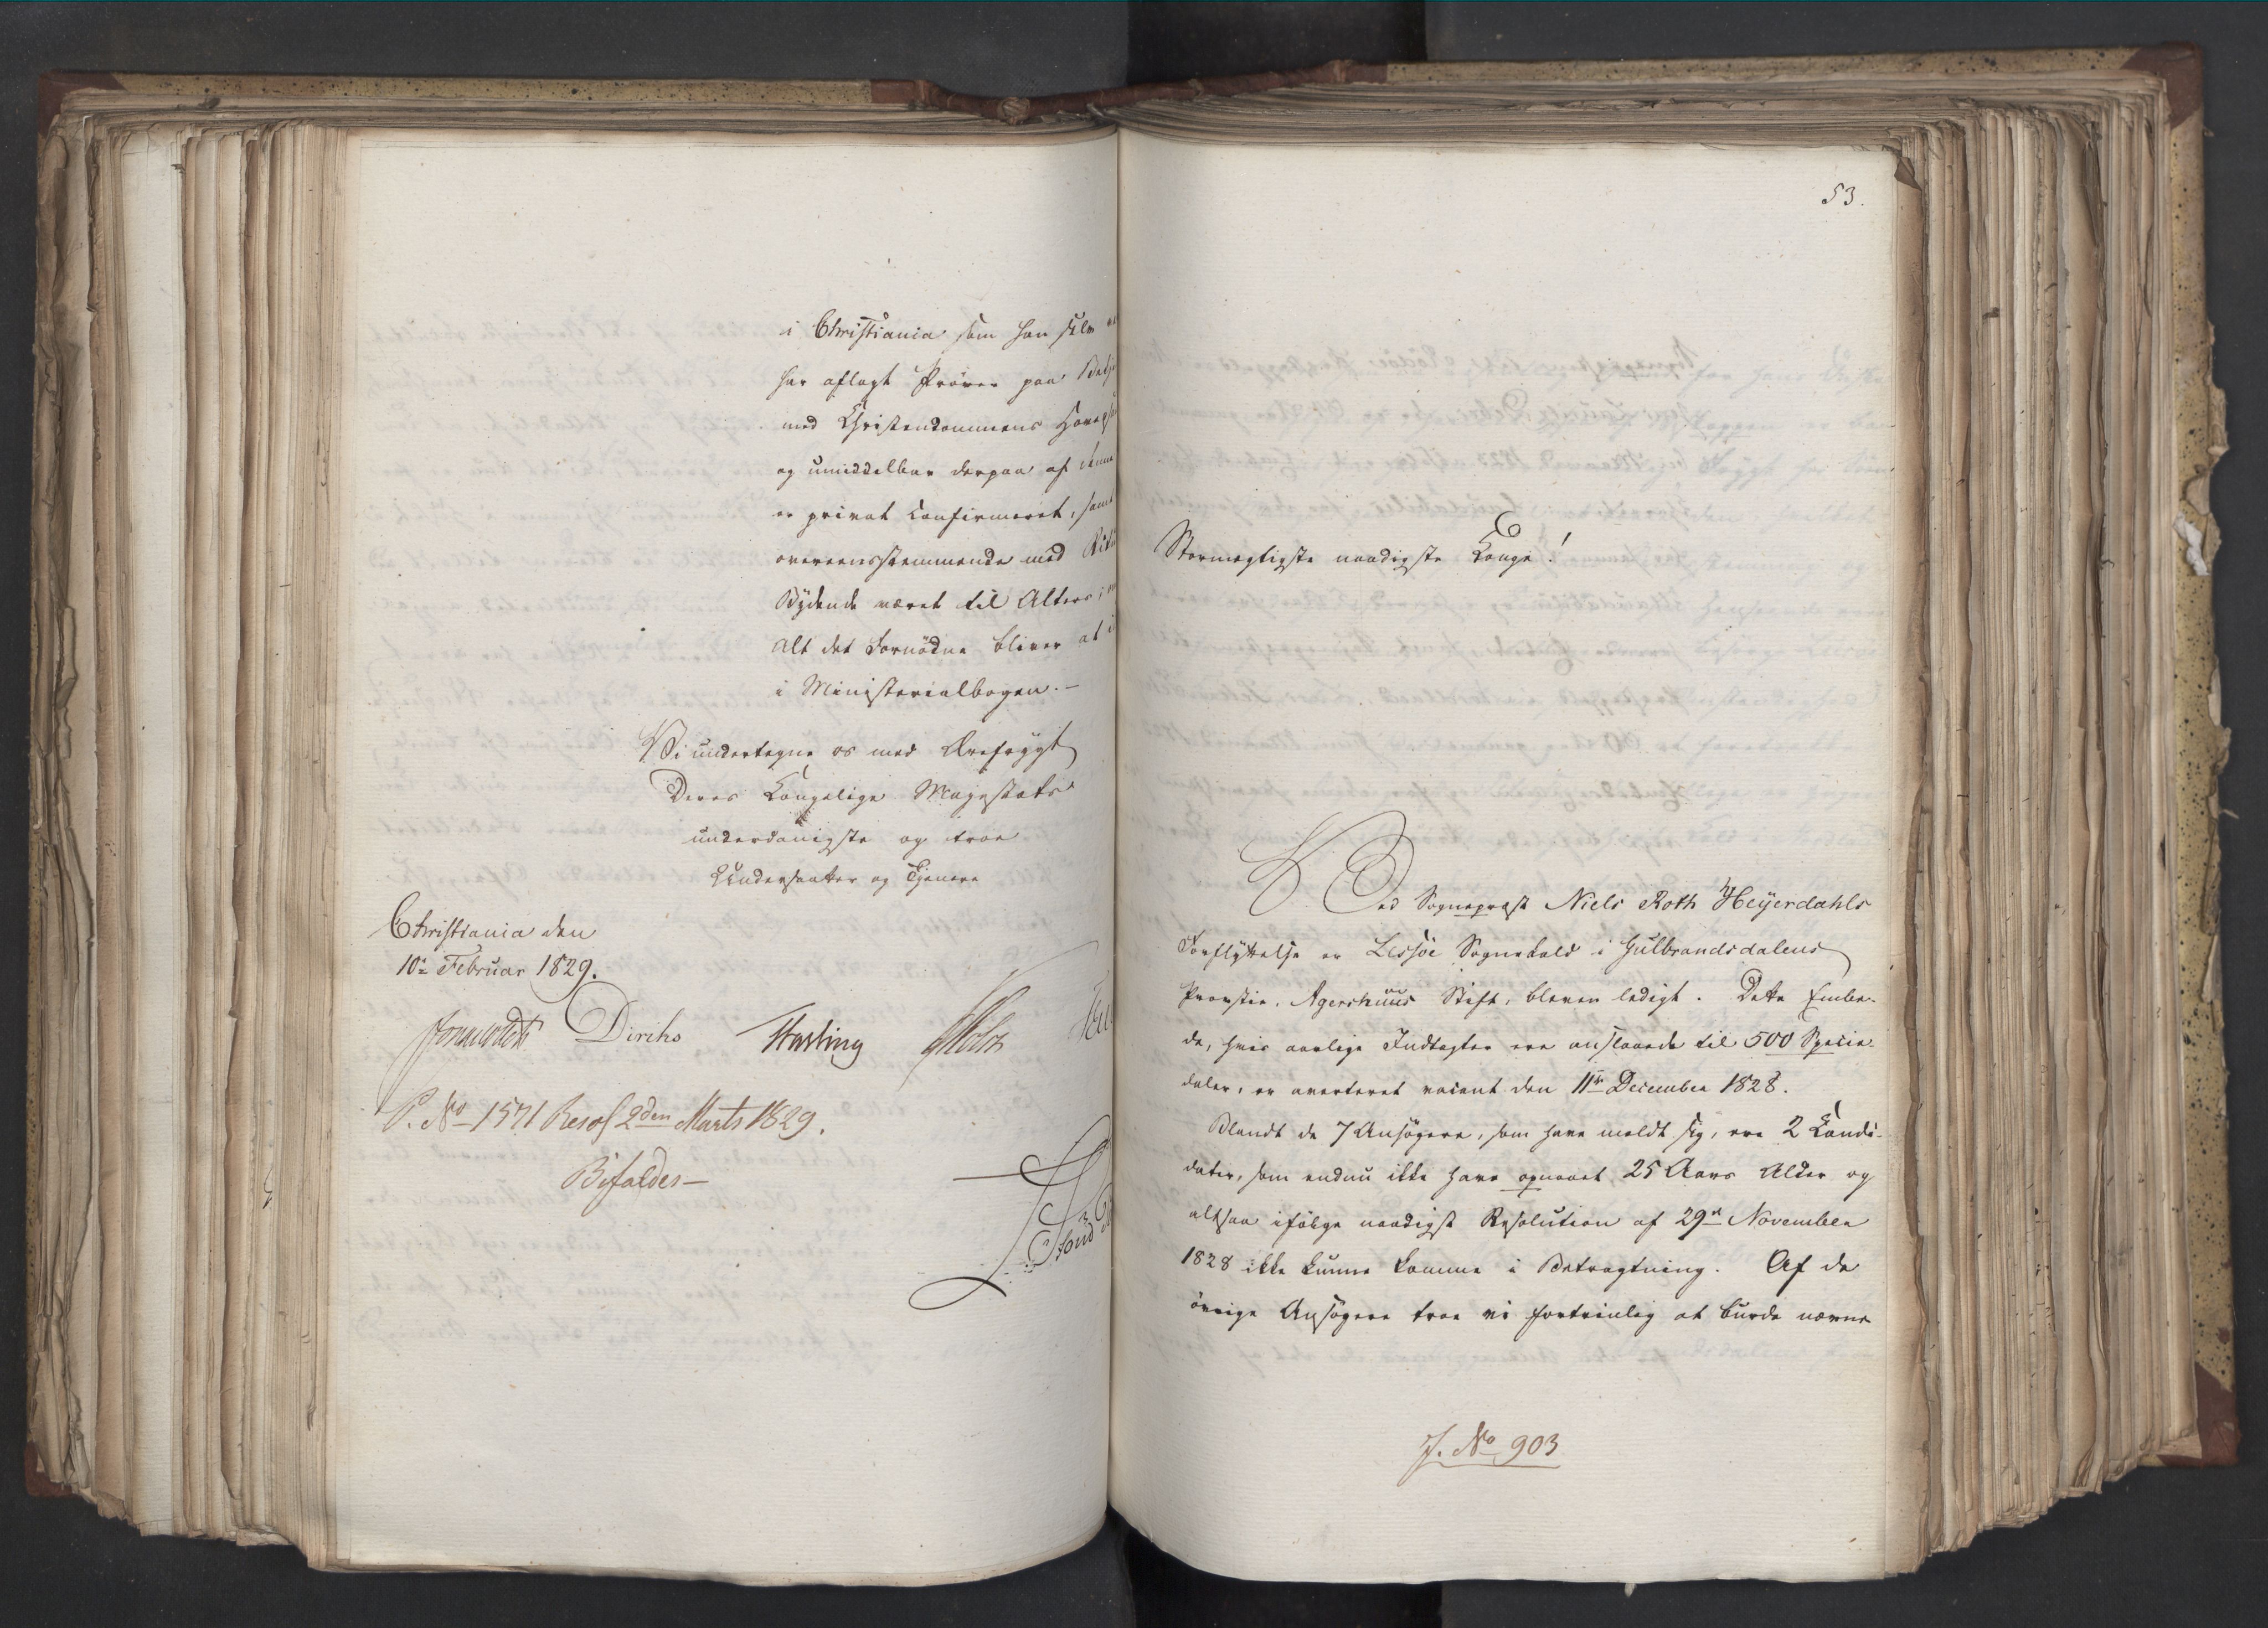 i Christiania som han selv
har aflagt Prøver paa
med Christendommens
og umiddelbar derpaa af denne
er privat confirmeret, samt
overeensstemmende med
Bydende været til Alters,
alt det Fornødne bliver at
i Ministerialbogen. -
Vi undertegne os med Ærefrygt
Deres Kongelige Majestæts
underdanigste og troe
Undersaatter og Tjenere
Christiania den
10de Februar 1829.
Diriks Hasting Holst
P. No 1571 Resol 2den Marts 1829.
Bifaldes -
53.
Stormægtigste naadigste Konge!
Ved Sogneprest Niels Roth Heÿerdahls
Forflyttelse er Lessøe Sognekald i Gulbrandsdalens
Provstie, Agershuus Stift, bleven ledigt. Dette Embe-
de, hvis aarlige Indtægter ere anslaaede til 500 Specie-
daler, er averteret vacant den 11te December 1828.
Blandt de 7 Ansøgere, som have meldt sig, ere 2 Candi-
dater, som endnu ikke have opnaaet 25 Aars Alder og
altsaa ifølge naadigst Resolution af 29de November
1828 ikke kunne komme i Betragtning. Af de
øvrige Ansøgere troe vi fortrinlig at burde nævne
J. No 903